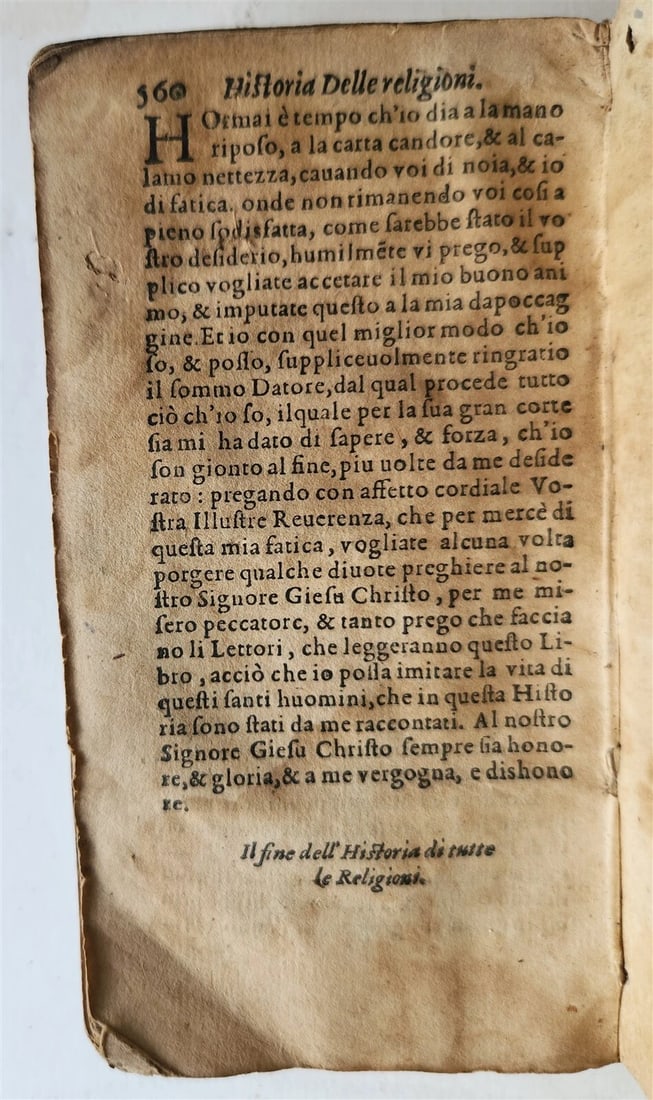 560 Hiſtoria Delle religioni.
HOrmai è tempo ch'io dia a la mano
ripoſo, a la carta candore, & al ca-
lamo nettezza, cauando voi di noia, & io
di fatica. onde non rimanendo voi coſi a
pieno ſodisfatta, come ſarebbe ſtato il vo
ſtro deſiderio, humilmẽte vi prego, & ſup
plico vogliate accetare il mio buono ani
mo, & imputate queſto a la mia dapoccag
gine. Et io con quel miglior modo ch'io
ſo, & poſſo, ſuppliceuolmente ringratio
il ſommo Datore, dal qual procede tutto
ciò ch'io ſo, ilquale per la ſua gran corte
ſia mi ha dato di ſapere, & forza, ch'io
ſon gionto al fine, piu uolte da me deſide
rato: pregando con affetto cordiale Vo-
ſtra Illuſtre Reuerenza, che per mercè di
queſta mia fatica, vogliate alcuna volta
porgere qualche diuote preghiere al no-
ſtro Signore Gieſu Chriſto, per me mi-
ſero peccatore, & tanto prego che faccia
no li Lettori, che leggeranno queſto Li-
bro, acciò che io poſſa imitare la vita di
queſti ſanti huomini, che in queſta Hiſto
ria ſono ſtati da me raccontati. Al noſtro
Signore Gieſu Chriſto ſempre ſia hono-
re, & gloria, & a me vergogna, e dishono
re.
Il fine dell' Hiſtoria di tutte
le Religioni.